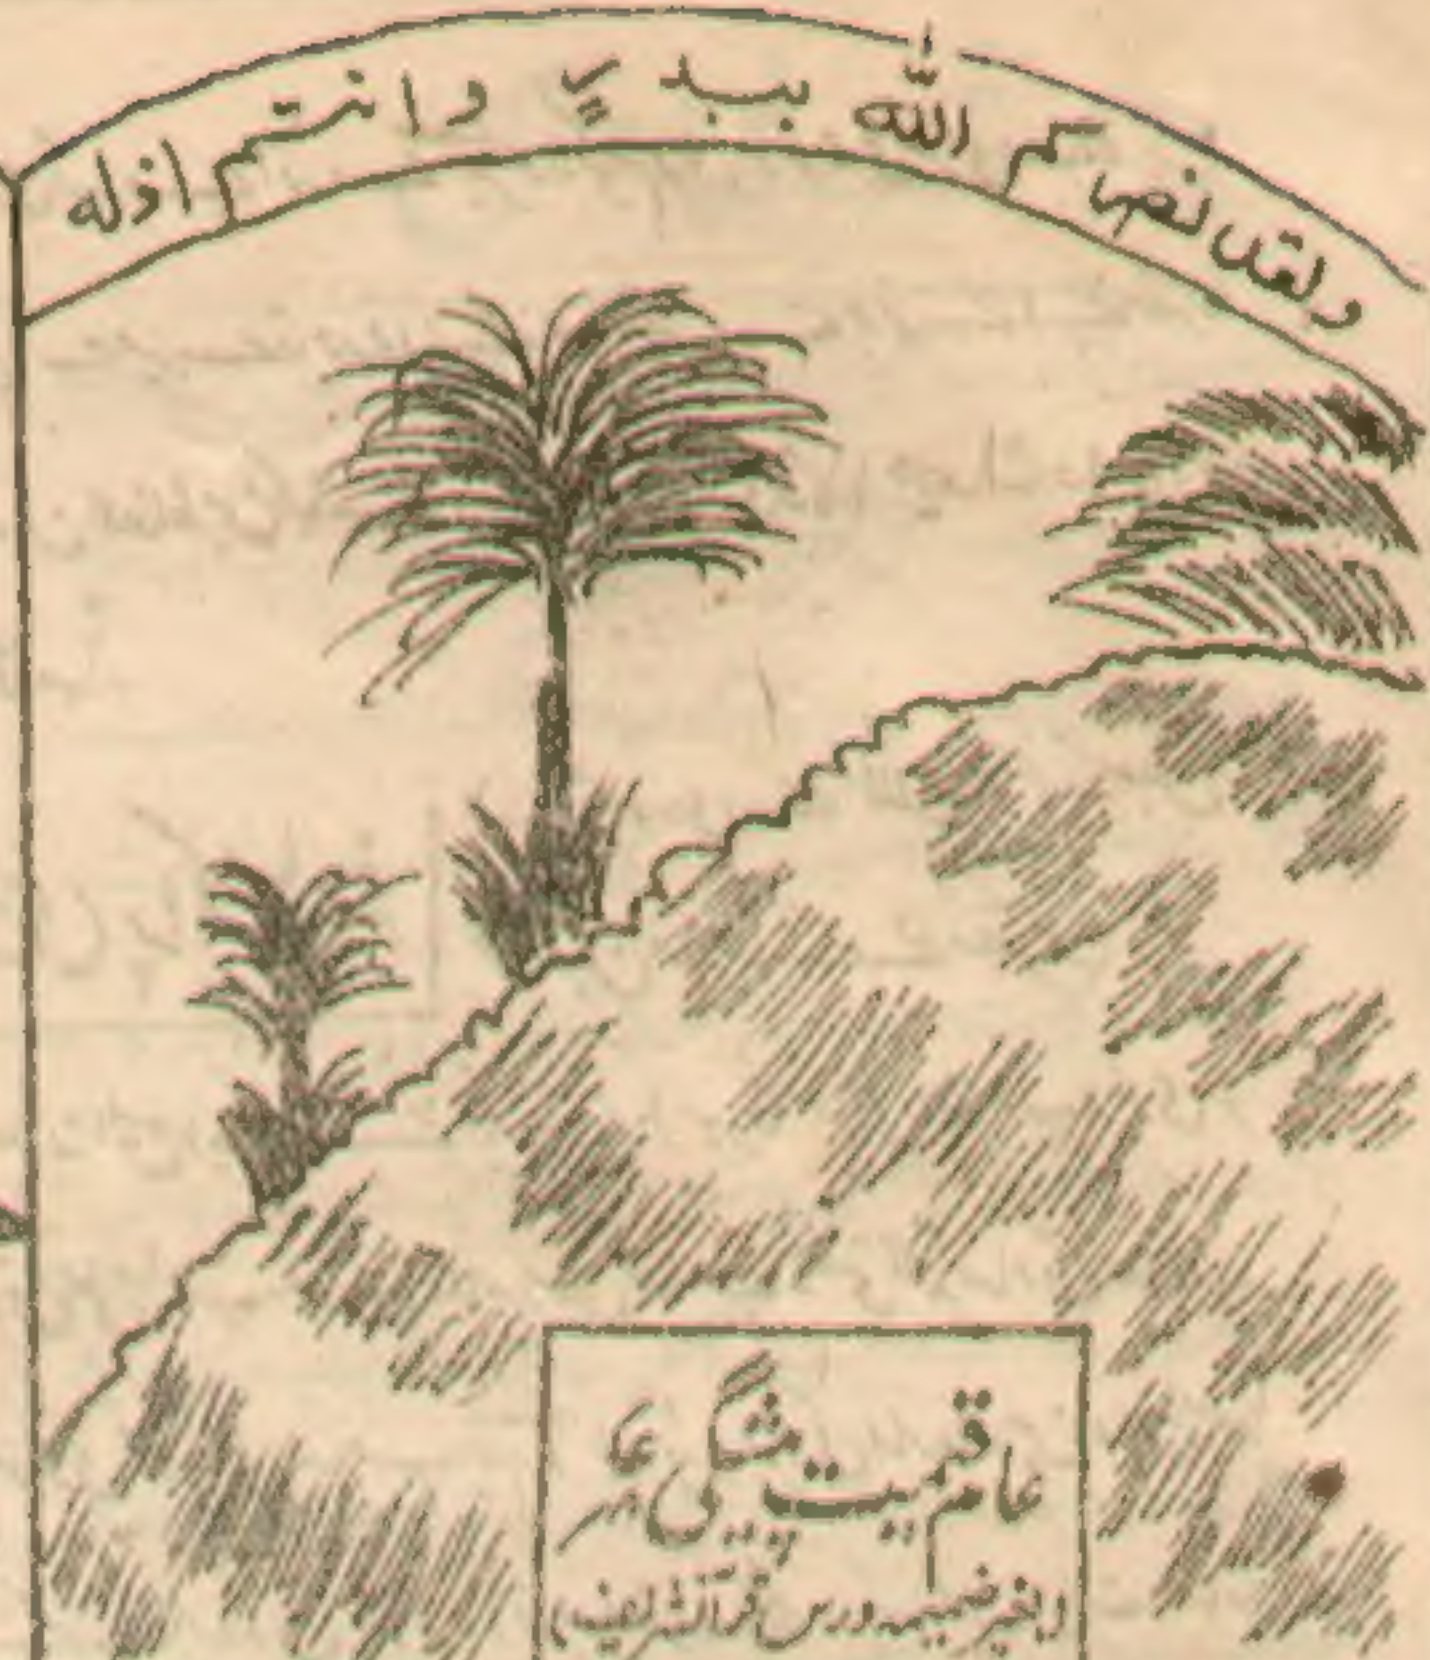 ولقد نصركم الله ببدرٍ وانتم اذله
عام قیمت پیشگی
(بغیر ضمیمہ درس قرآن شریف)